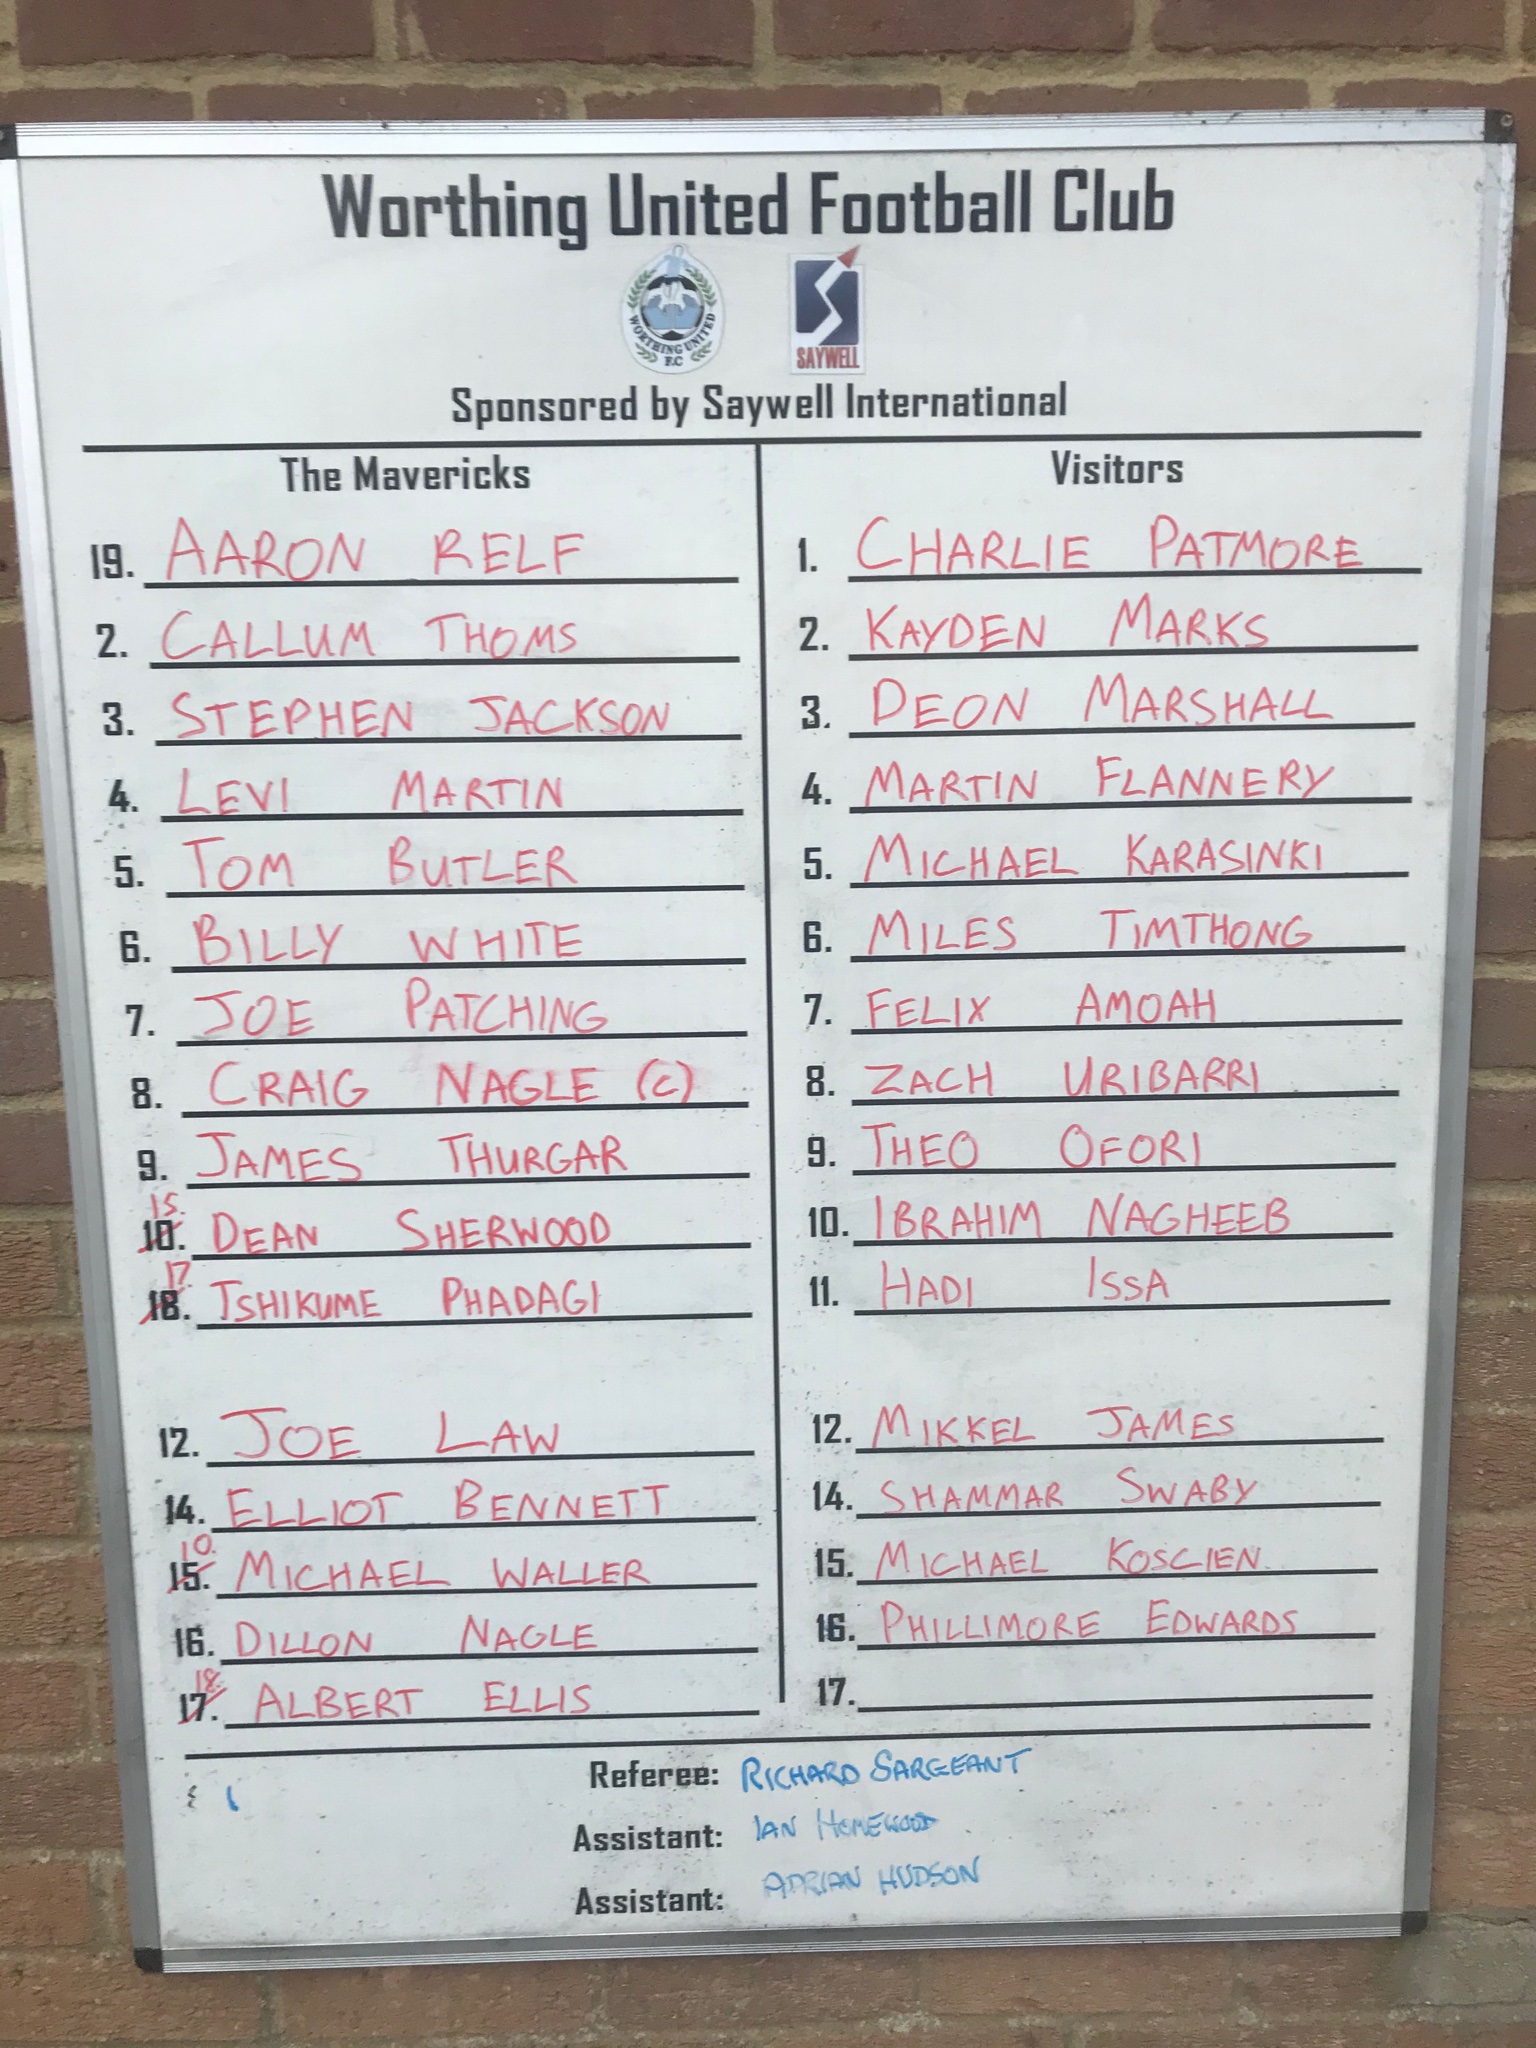 Worthing United Football Club
WORTHING UNITED
F.C
SAYWELL
Sponsored by Saywell International
The Mavericks
19. AARON RELF
2. CALLUM THOMS
3. STEPHEN JACKSON
4. LEVI MARTIN
5. TOM BUTLER
6. BILLY WHITE
7. JOE PATCHING
8. CRAIG NAGLE (C)
9. JAMES THURGAR
15.
10. DEAN SHERWOOD
17
18. TSHIKUME PHADAGI
12. JOE LAW
14. ELLIOT BENNETT
10.
15. MICHAEL WALLER
16. DILLON NAGLE
18.
17. ALBERT ELLIS
Visitors
1. CHARLIE PATMORE
2. KAYDEN MARKS
3. DEON MARSHALL
4. MARTIN FLANNERY
5. MICHAEL KARASINKI
6. MILES TIMTHONG
7. FELIX AMOAH
8. ZACH URIBARRI
9. THEO OFORI
10. IBRAHIM NAGHEEB
11. HADI ISSA
12. MIKKEL JAMES
14. SHAMMAR SWABY
15. MICHAEL KOSCIEN
16. PHILLIMORE EDWARDS
17.
Referee: RICHARD SARGEANT
Assistant: IAN HOMEWOOD
Assistant: ADRIAN HUDSON